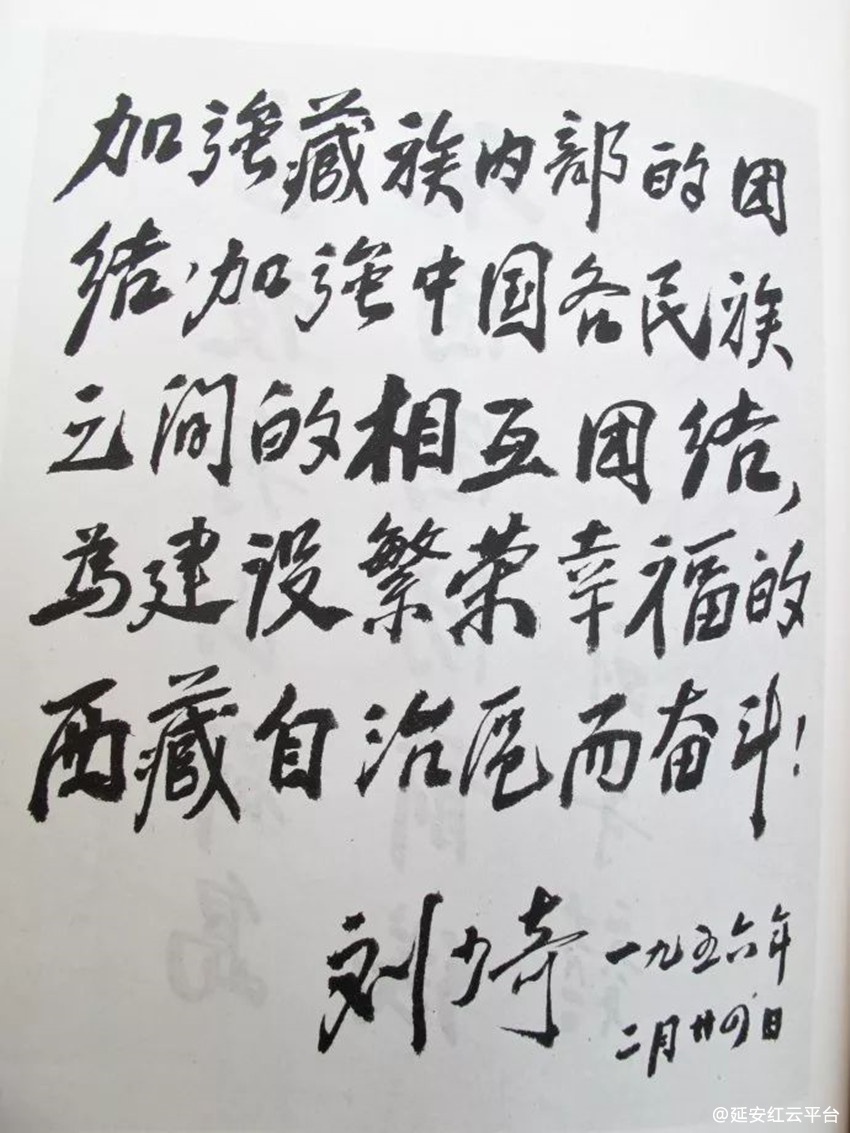 加强藏族内部的团
结，加强中国各民族
之间的相互团结，
为建设繁荣幸福的
西藏自治区而奋斗！
刘少奇
一九五六年
二月廿四日
@延安红云平台